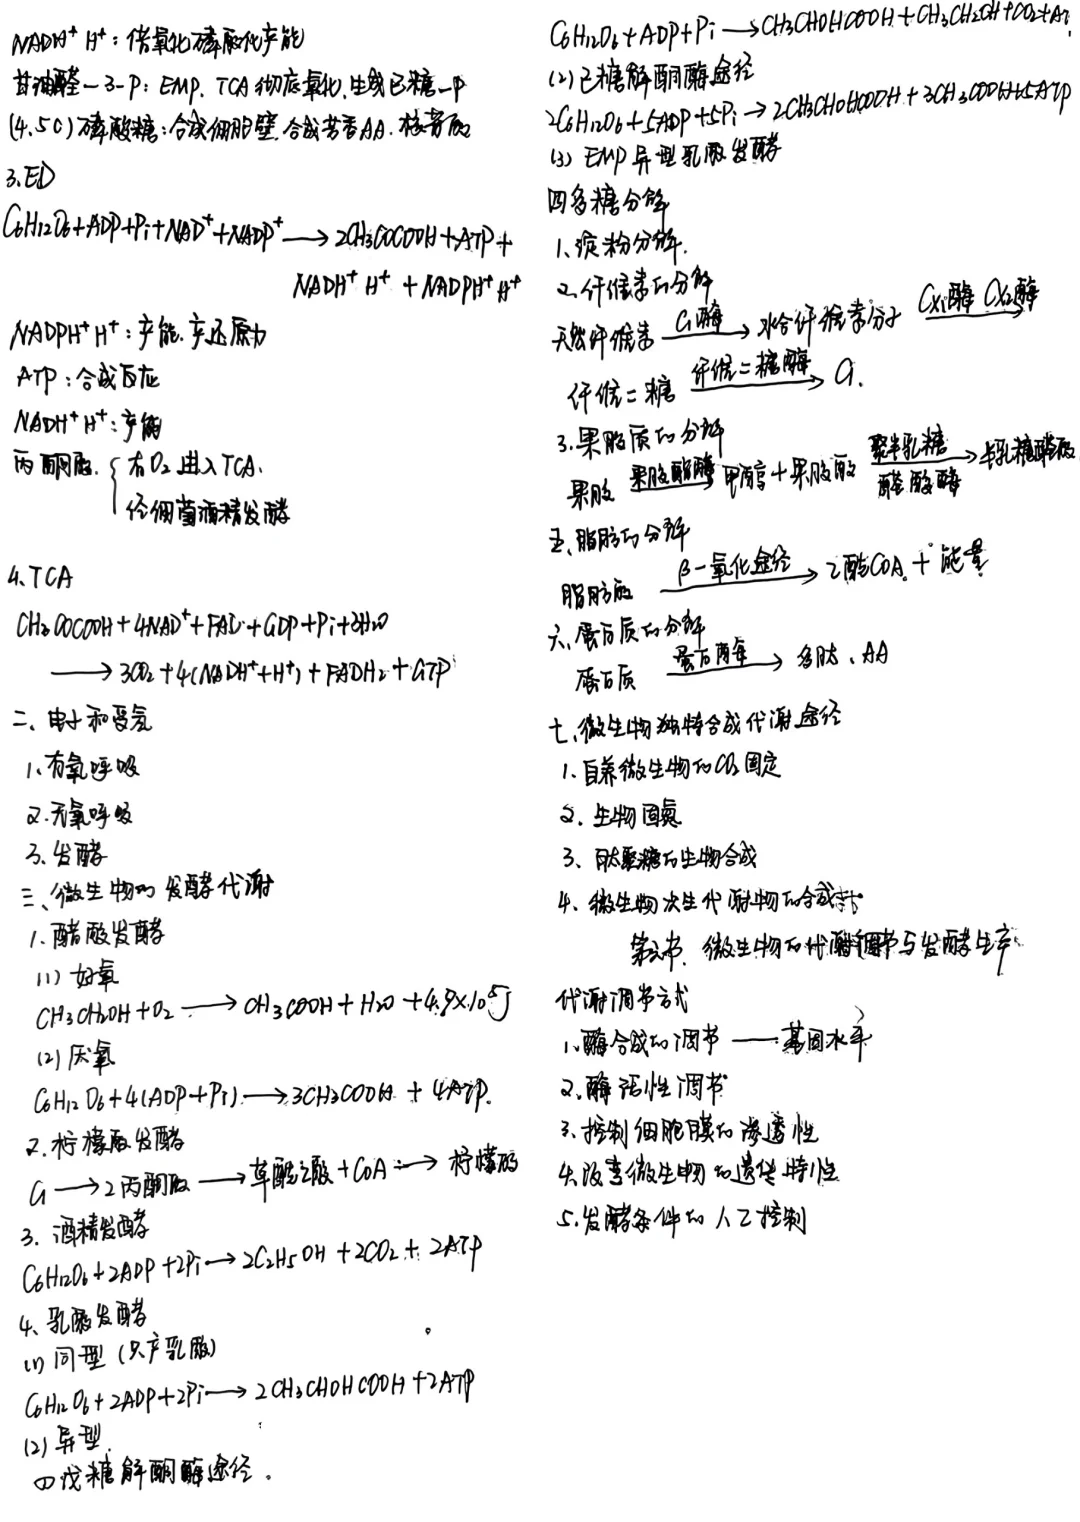 NADH⁺ H⁺：经氧化磷酸化产能
甘油醛-3-P：EMP、TCA彻底氧化，生成己糖-P
(4.5C)磷酸糖：合成细胞壁，合成芳香AA，核苷酸
3.ED
C6H12O6+ADP+Pi+NAD⁺+NADP⁺→2CH3COCOOH+ATP+
NADH⁺H⁺+NADPH⁺H⁺
NADPH⁺H⁺：产能，产还原力
ATP：合成反应
NADH⁺H⁺：产能
丙酮酸{有O2进入TCA、
经细菌酒精发酵
4.TCA
CH3COCOOH+4NAD⁺+FAD+GDP+Pi+3H2O
→3CO2+4(NADH⁺+H⁺)+FADH2+GTP
二、电子和受氢
1、有氧呼吸
2.无氧呼吸
3、发酵
三、微生物的发酵代谢
1、醋酸发酵
(1)好氧
CH3CH2OH+O2→CH3COOH+H2O+4.9×10⁵J
(2)厌氧
C6H12O6+4(ADP+Pi)→3CH3COOH+4ATP
2.柠檬酸发酵
G→2丙酮酸→草酰乙酸+CoA→柠檬酸
3.酒精发酵
C6H12O6+2ADP+2Pi→2C2H5OH+2CO2+2ATP
4、乳酸发酵
(1)同型(只产乳酸)
C6H12O6+2ADP+2Pi→2CH3CHOHCOOH+2ATP
(2)异型
①戊糖解酮酶途径。
C6H12O6+ADP+Pi→CH3CHOHCOOH+CH3CH2OH+CO2+AT
(2)己糖解酮酶途径
2C6H12O6+5ADP+5Pi→2CH3CHOHCOOH+3CH3COOH+5ATP
(3)EMP异型乳酸发酵
四多糖分解
1、淀粉分解、
2、纤维素的分解
天然纤维素 C1酶→水合纤维素分子 Cx1酶 Cx2酶→
纤维二糖 纤维二糖酶→G.
3.果胶质的分解
果胶 果胶酯酶→甲醇+果胶酸 聚半乳糖醛酸酶→半乳糖醛酸
五、脂肪的分解
脂肪酸 β-氧化途径→乙酰CoA+能量
六、蛋白质的分解
蛋白质 蛋白酶→多肽、AA
七、微生物独特合成代谢途径
1、自养微生物的CO2固定
2、生物固氮
3、肽聚糖的生物合成
4、微生物次生代谢物的合成
节、微生物的代谢调节与发酵生产
代谢调节方式
1、酶合成的调节——基因水平
2、酶活性调节
3、控制细胞膜的渗透性
4、改变微生物的遗传特性
5、发酵条件的人工控制